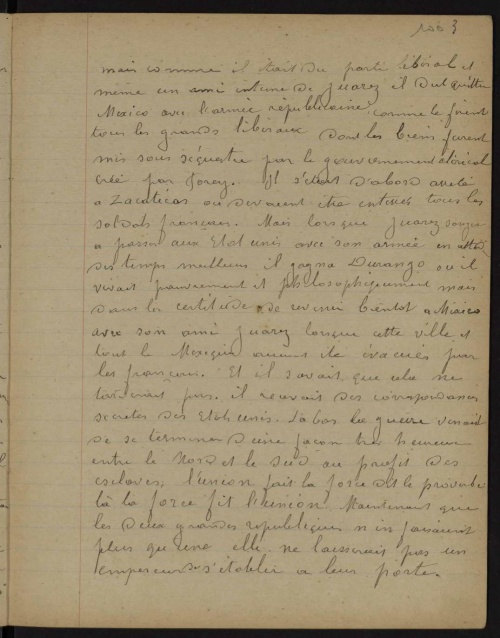 mais comme il était du parti libéral et
même un ami intime de Juarez il dut quitter
Mexico avec l'armée républicaine comme le firent
tous les grands libéraux dont les biens furent
mis sous séquestre par le gouvernement clérical
créé par Forey. Il s'était d'abord arrêté
a Zacatécas ou devaient être tous les
soldats français. Mais lorsque Juarez songea
a passer aux Etat unis avec son armée en
des temps meilleurs il gagna Durango ou il
vivait pauvrement et philosophiquement mais
dans la certitude de revenir bientot a Mexico
avec son ami Juarez lorsque cette ville et
tout le Mexique auraient été évacués par
les français. Et il savait que cela ne
tarderait pas. il recevait des correspondances
secretes des Etats unis. Là bas la guerre venait
de se terminer d'une façon très heureuse
entre le Nord et le Sud au profit des
esclaves, l'union fait la force dit le proverbe
là la force fit l'union. Maintenant que
les deux grandes republiques n'en faisaient
plus qu'une elle ne laisserait pas un
empereur s'établir a leur porte.